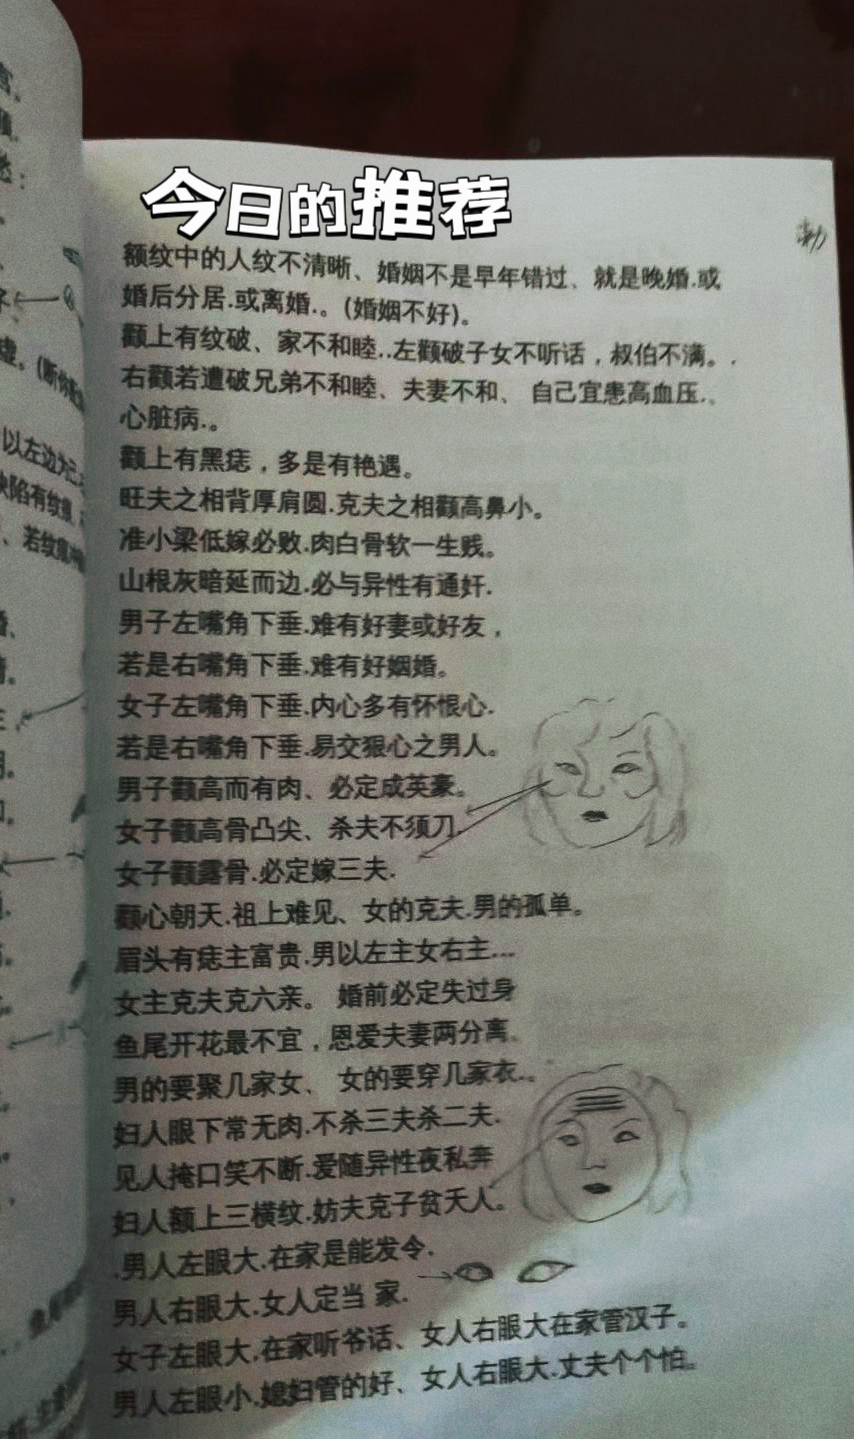 今日的推荐
额纹中的人纹不清晰、婚姻不是早年错过、就是晚婚.或
婚后分居.或离婚.。(婚姻不好)。
颧上有纹破、家不和睦..左颧破子女不听话，叔伯不满。.
右颧若遭破兄弟不和睦、夫妻不和、 自己宜患高血压.、
心脏病.。
颧上有黑痣，多是有艳遇。
旺夫之相背厚肩圆.克夫之相颧高鼻小。
准小梁低嫁必败.肉白骨软一生贱。
山根灰暗延而边.必与异性有通奸.
男子左嘴角下垂.难有好妻或好友，
若是右嘴角下垂.难有好姻婚。
女子左嘴角下垂.内心多有怀恨心.
若是右嘴角下垂.易交狠心之男人。
男子颧高而有肉、必定成英豪。
女子颧高骨凸尖、杀夫不须刀.
女子颧露骨.必定嫁三夫.
颧心朝天.祖上难见、女的克夫.男的孤单。
眉头有痣主富贵.男以左主女右主...
女主克夫克六亲。 婚前必定失过身
鱼尾开花最不宜，恩爱夫妻两分离、
男的要聚几家女、 女的要穿几家衣.。
妇人眼下常无肉.不杀三夫杀二夫.
见人掩口笑不断.爱随异性夜私奔
妇人额上三横纹.妨夫克子贫夭人。
.男人左眼大.在家是能发令.
男人右眼大.女人定当 家.
女子左眼大.在家听爷话、女人右眼大在家管汉子。
男人左眼小.媳妇管的好、女人右眼大.丈夫个个怕。